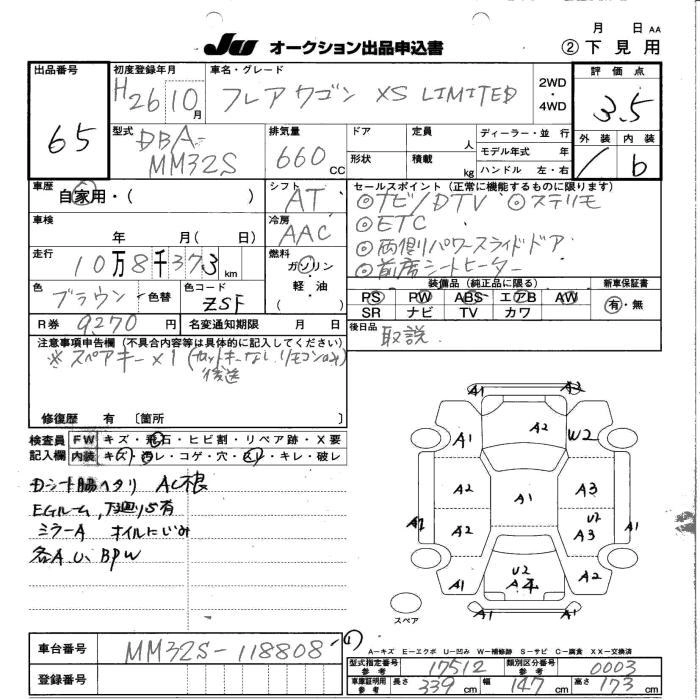 JU オークション出品申込書
月 日 AA
② 下見用
出品番号
65
初度登録年月
H26 10月
車名・グレード
フレアワゴン XS LIMITED
2WD・4WD
評価点
3.5
外装 内装
b
型式
DBA-
MM32S
排気量
660 CC
ドア
定員 人
形状
積載 kg
ディーラー・並行
モデル年式 年
ハンドル 左・右
車歴
自家用・( )
シフト
AT
セールスポイント (正常に機能するものに限ります)
◎TVビ/DTV ◎ステリモ
◎ETC
◎両側パワースライドドア
◎前席シートヒーター
車検
年 月( 日)
冷房
AAC
走行
10万8千373km
燃料
ガソリン
軽・油
( )
色
ブラウン
色替
色コード
ZSF
装備品 (純正品に限る)
PS PW ABS エアB AW
SR ナビ TV カワ
新車保証書
有・無
R券 9,270円
名変通知期限 月 日
後日品
取説
注意事項申告欄 (不具合内容等は具体的に記入してください)
※スペアキー×1 (カットキーなし、リモコンのみ)
後送
修復歴 有 〔箇所 〕
検査員記入欄
FW キズ・飛石・ヒビ割・リペア跡・X要
内装 キズ・汚レ・コゲ・穴・スレ・キレ・破レ
Dシート脇ヘタリ AC根
EGルーム、下廻りサビ有
ミラーA オイルにじみ
各A.U、BPW
A1 A2
A1 A2 W2
A2 A1 A3
A2 A2 U2 A3 A1
A1 U2 A4 A2
A1 A1
スペア
車台番号
MM32S-118808
登録番号
A-キズ E-エクボ U-凹み W-補修跡 S-サビ C-腐食 XX-交換済
型式指定番号参考 17512
類別区分番号参考 0003
車庫証明用参考 長さ 339cm 幅 147cm 高さ 173cm